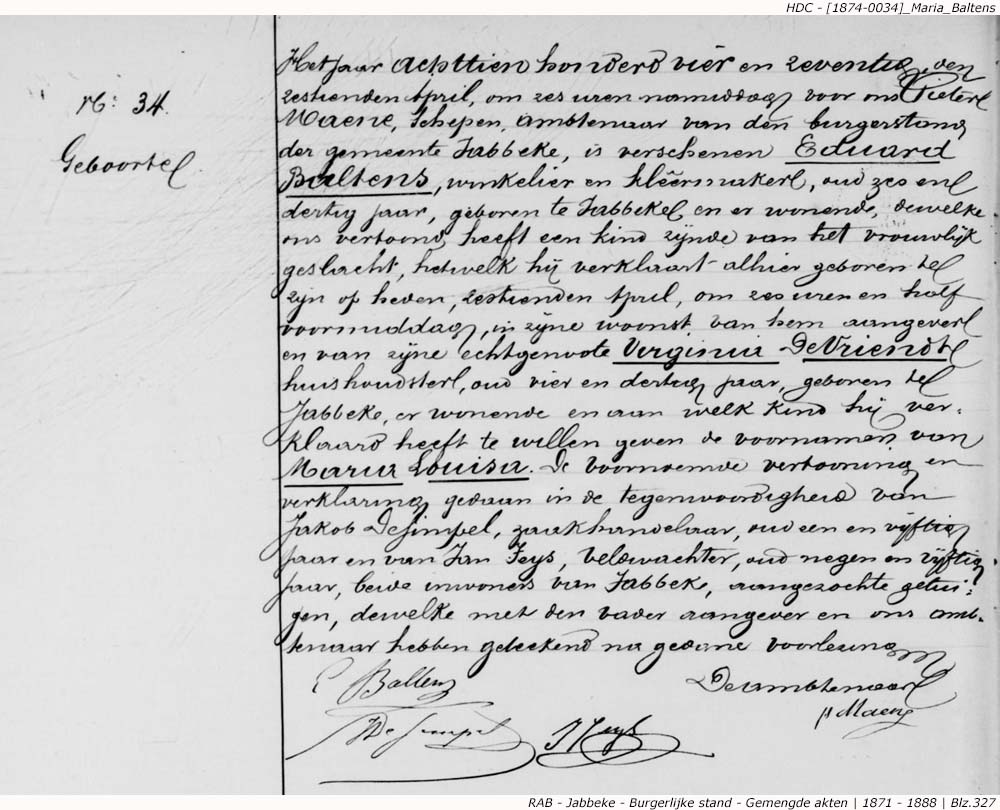 HDC - [1874-0034]_Maria_Baltens
N°: 34.
Geboorte
Het jaar achttien honderd vier en zeventig, den
zestienden April, om zes uren namiddag voor ons Pieter
Maene, Schepen, ambtenaar van den burgerstand
der gemeente Jabbeke, is verschenen Eduard
Baltens, winkelier en kleêrmaker, oud zes en
dertig jaar, geboren te Jabbeke en er wonende, dewelke
ons vertoond heeft een kind zijnde van het vrouwlijk
geslacht, hetwelk hij verklaart alhier geboren te
zijn op heden, zestienden April, om zes uren en half
voormiddag, in zijne woonst van hem aangever
en van zijne echtgenoote Virginia DeVriendt
huishoudster, oud vier en dertig jaar, geboren te
Jabbeke, er wonende en aan welk kind hij ver-
klaard heeft te willen geven de voornamen van
Maria Louisa. De voornoemde vertooning en
verklaring gedaan in de tegenwoordigheid van
Jakob Desimpel, zaakhandelaar, oud een en vijftig
jaar en van Jan Feys, veldwachter, oud negen en vijftig
jaar, beide inwoners van Jabbeke, aangezochte getui-
gen, dewelke met den vader aangever en ons amb-
tenaar hebben geteekend na gedane voorlezing
E Baltens
De ambtenaar
P Maene
J De Simpel
J Feys
RAB - Jabbeke - Burgerlijke stand - Gemengde akten | 1871 - 1888 | Blz.327